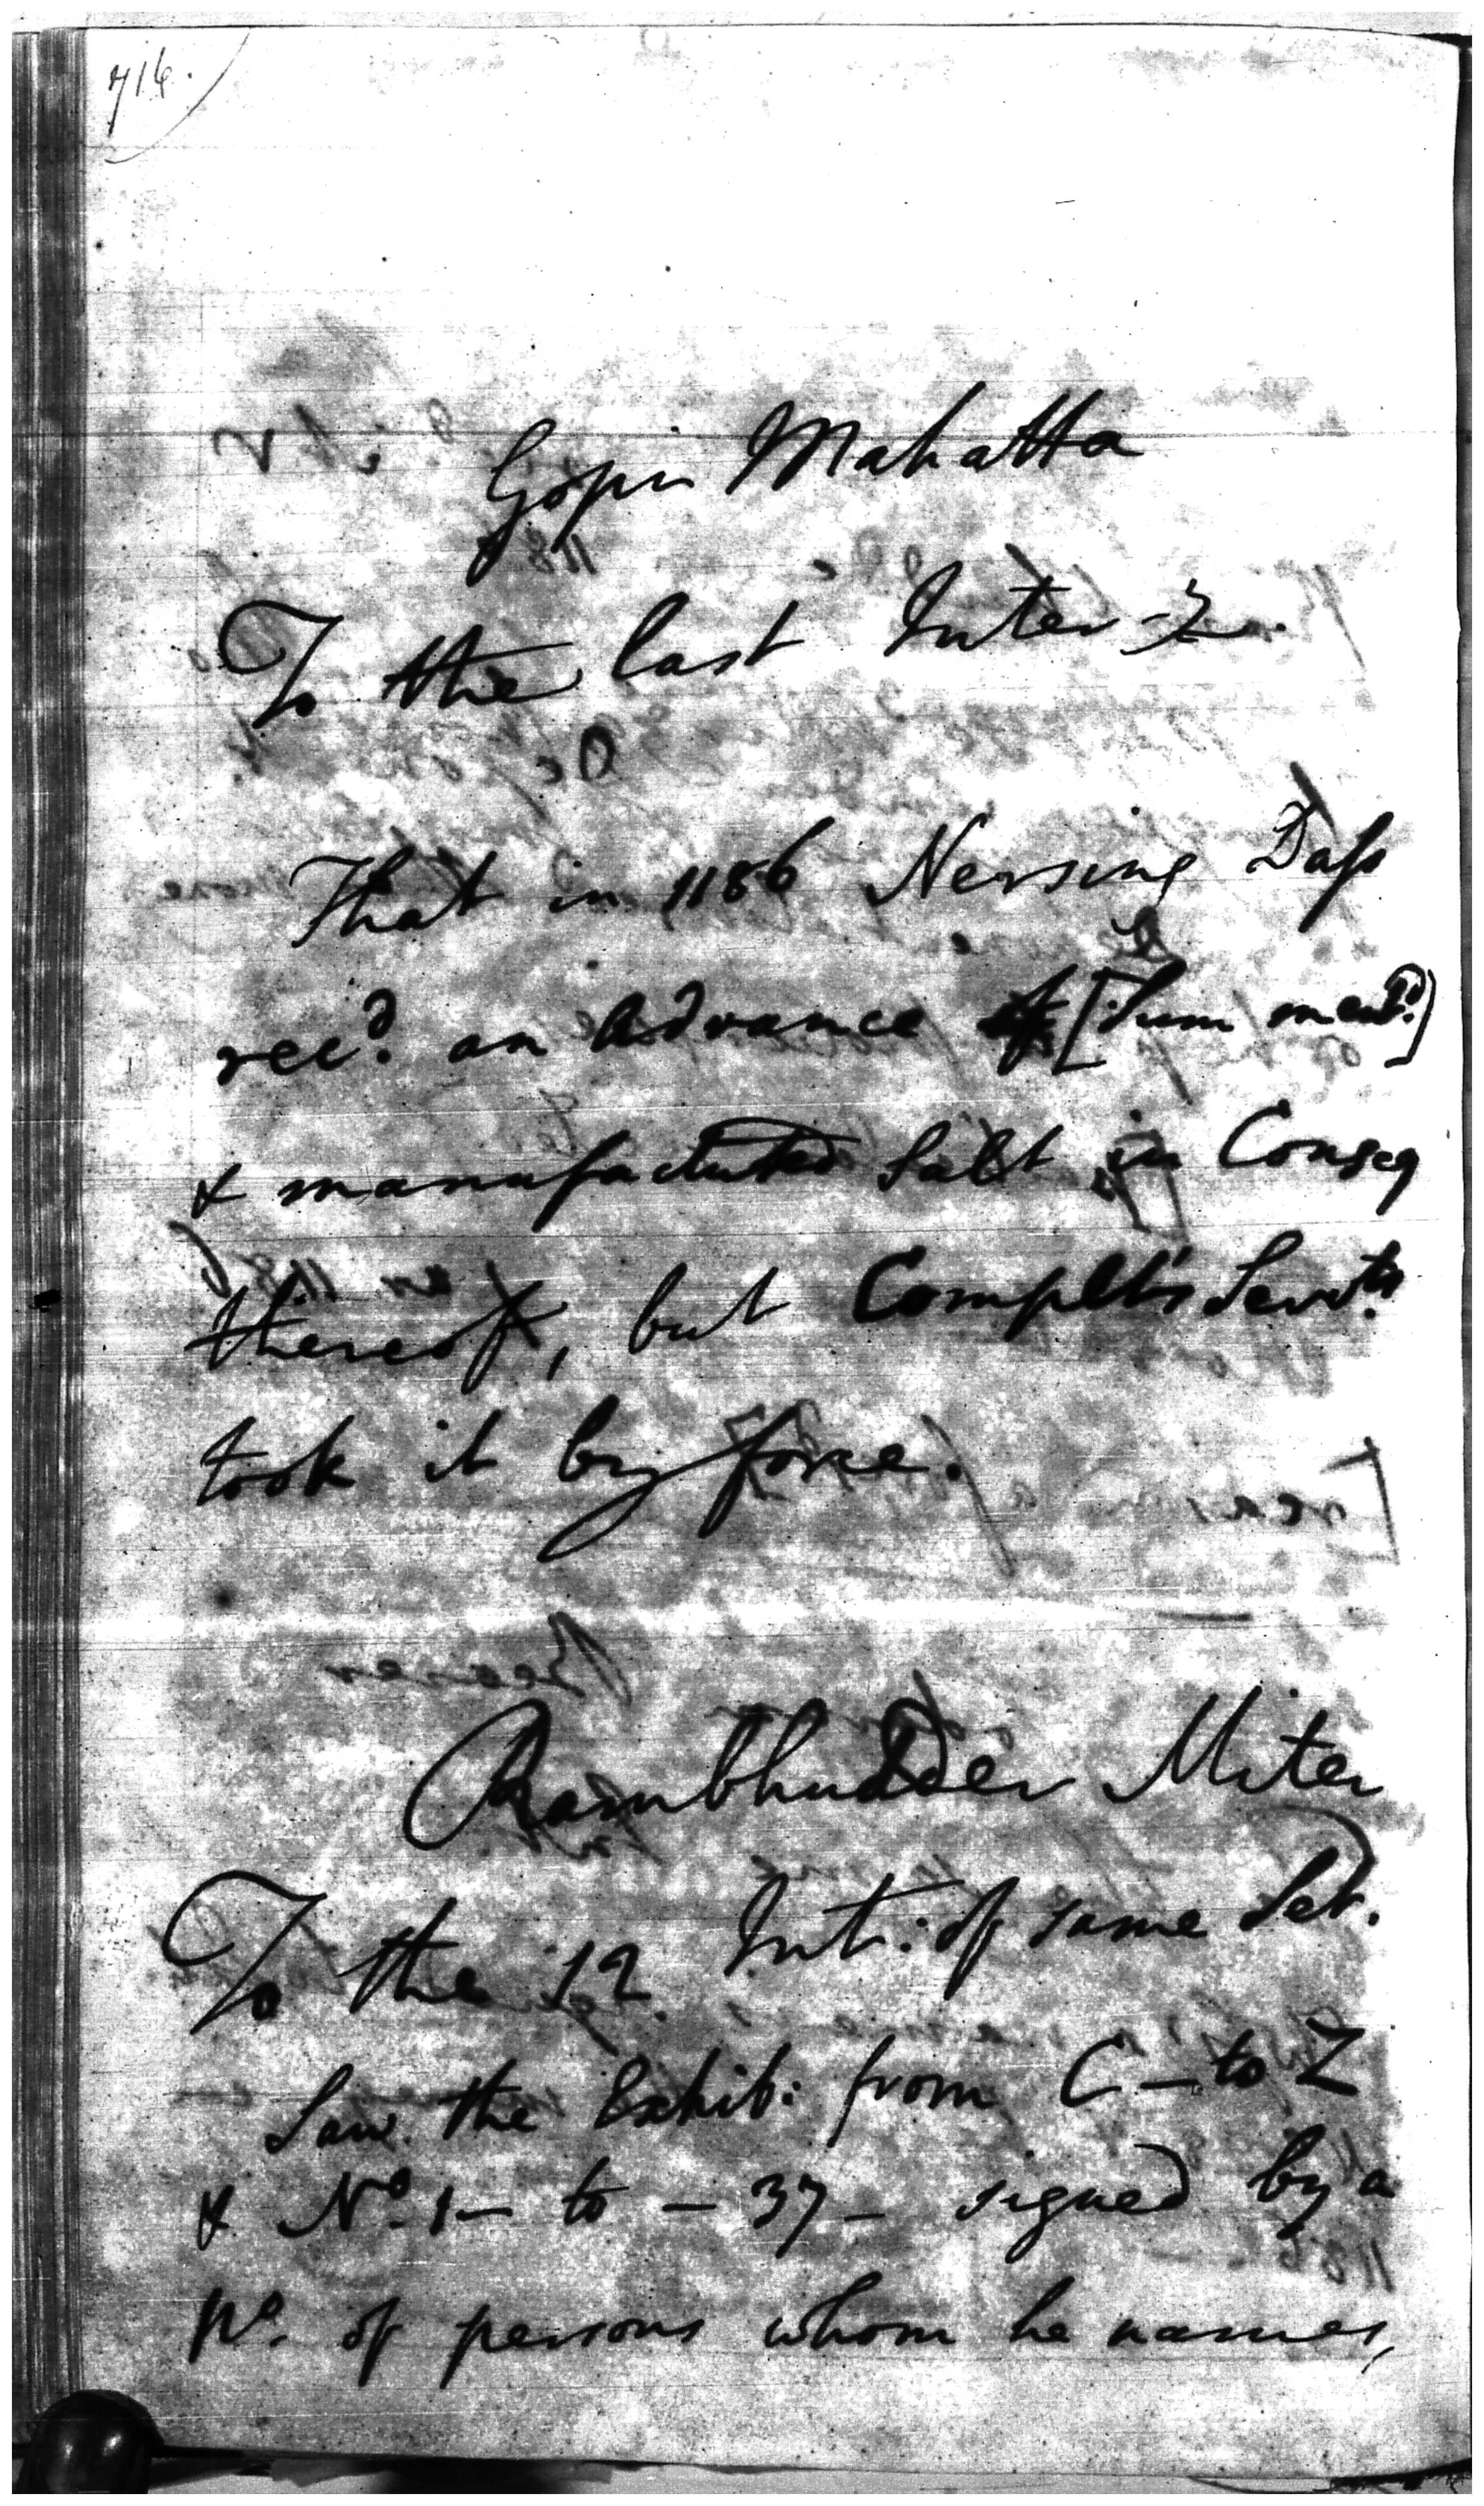 716.
Gopi Mahatta
To the last Inter
That in 1186 Nersing Dass
rec'd. an Advance of [Sum ment'd.]
& manufactured Salt in Conseq
thereof, but Complt's Serv'ts.
took it by force.
Rambhudder Miter
To the 12 Int: of same Set.
Saw the Exhib: from C - to Z
& No. 1 - to - 37 - signed by a
No. of persons whom he names,